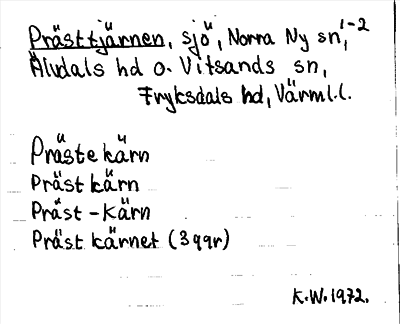 Prästtjärnen, sjö, Norra Ny sn, 1-2
Älvdals hd o. Vitsands sn,
Fryksdals hd, Värml.l.
Prästekärn
Präst kärn
Präst-kärn
Präst kärnet (3 ggr)
K.W. 1972.